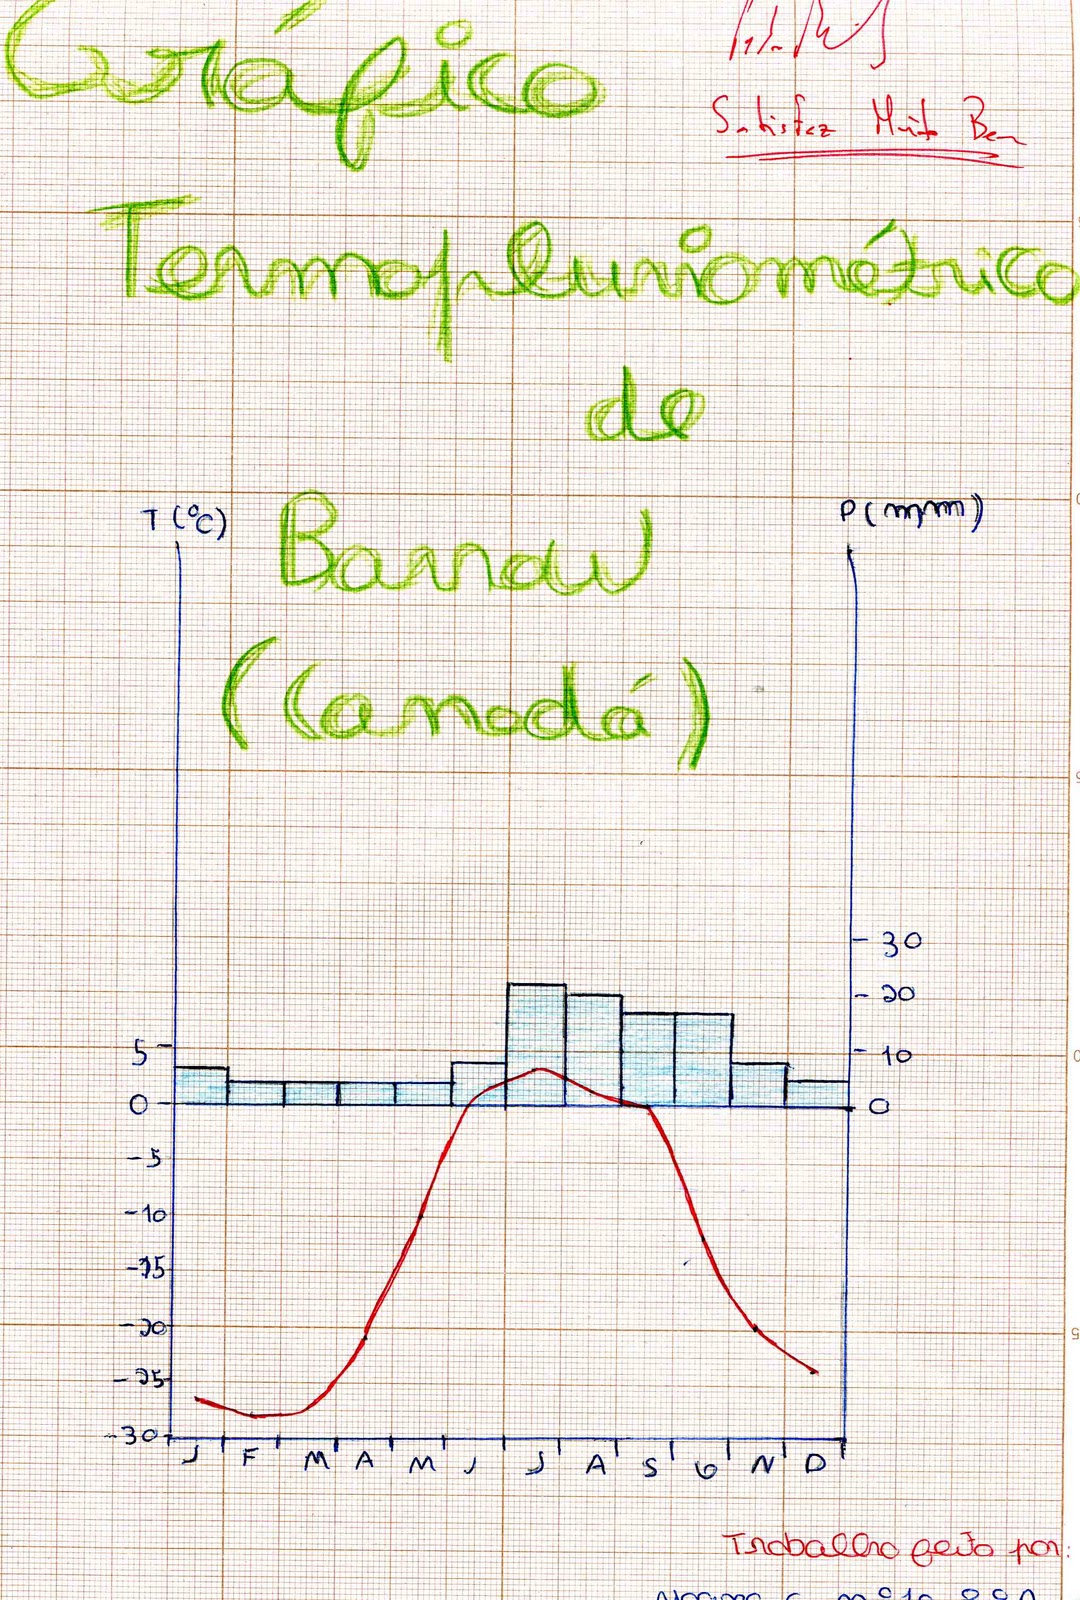 Gráfico
Satisfaz Muito Bem
Termopluviométrico
de
T (ºC)
P (mm)
Barrow
(Canadá)
30
20
5
10
0
0
-5
-10
-15
-20
-25
-30
J F M A M J J A S O N D
Trabalho feito por: